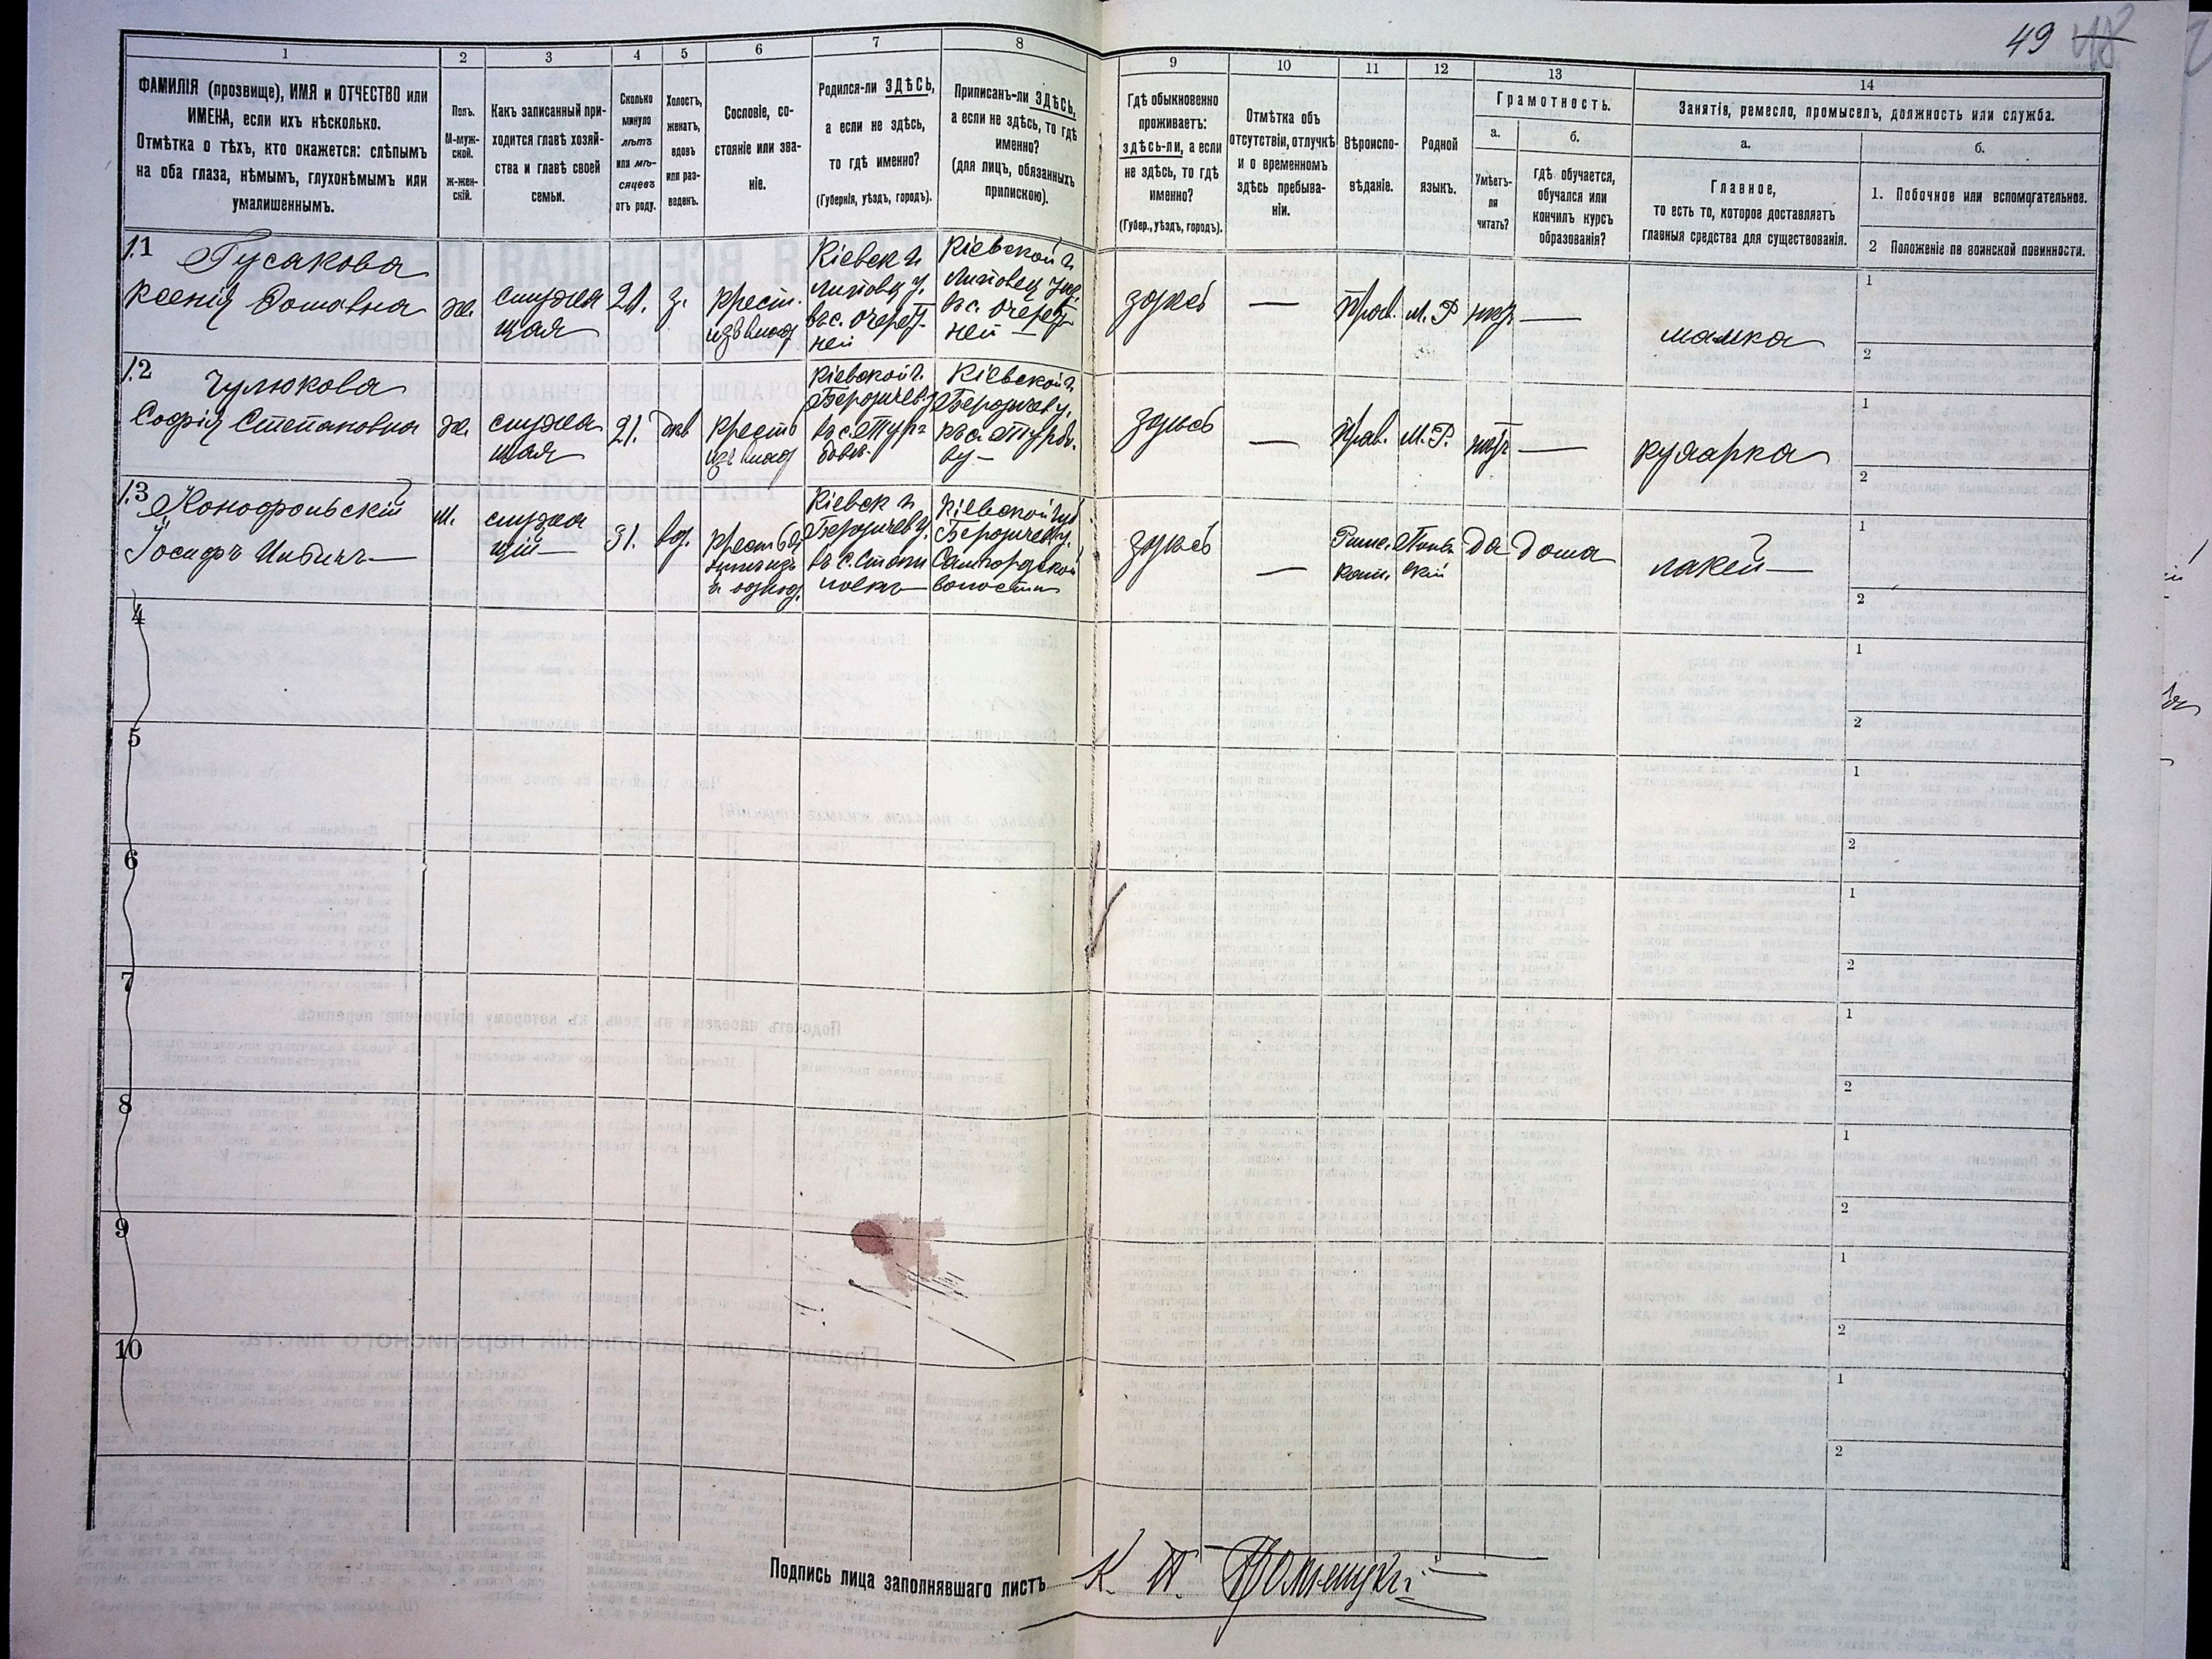 49 48
1
2
3
4
5
6
7
8
9
10
11
12
13
14
ФАМИЛІЯ (прозвище), ИМЯ и ОТЧЕСТВО или
ИМЕНА, если ихъ нѣсколько.
Отмѣтка о тѣхъ, кто окажется: слѣпымъ
на оба глаза, нѣмымъ, глухонѣмымъ или
умалишеннымъ.
Полъ.
М-муж-
ской.
Ж-жен-
скій.
Какъ записанный при-
ходится главѣ хозяй-
ства и главѣ своей
семьи.
Сколько
минуло
лѣтъ
или мѣ-
сяцевъ
отъ роду.
Холостъ,
женатъ,
вдовъ
или раз-
веденъ.
Сословіе, со-
стояніе или зва-
ніе.
Родился-ли ЗДѢСЬ,
а если не здѣсь,
то гдѣ именно?
(Губернія, уѣздъ, городъ).
Приписанъ-ли ЗДѢСЬ,
а если не здѣсь, то гдѣ
именно?
(для лицъ, обязанныхъ
припискою).
Гдѣ обыкновенно
проживаетъ:
здѣсь-ли, а если
не здѣсь, то гдѣ
именно?
(Губер., уѣздъ, городъ).
Отмѣтка объ
отсутствіи, отлучкѣ
и о временномъ
здѣсь пребыва-
ніи.
Вѣроиспо-
вѣданіе.
Родной
языкъ.
Грамотность.
а.
Умѣетъ-
ли
читать?
б.
гдѣ обучается,
обучался или
кончилъ курсъ
образованія?
Занятія, ремесло, промыселъ, должность или служба.
а.
Главное,
то есть то, которое доставляетъ
главныя средства для существованія.
б.
1. Побочное или вспомогательное.
2 Положеніе по воинской повинности.
1.1
Гусакова
Ксенія
ж.
служа
щая
20.
з.
крест.
изъ влад
Кіевск г.
Липовц у.
въ с. Очерет-
ней
Кіевской г.
Липовец
въ с. Очерет-
ней
здѣсь
—
Прав.
М. Р
нѣтъ
—
мамка
1
2
1.2
Чулюкова
Софія Степановна
ж.
служа
щая
21.
дѣв
кресть
изъ влад
Кіевской г.
Бердичев у
въ с. Тур-
бовѣ
Кіевской г.
Бердичев у.
къ с. Турбо-
ву —
здѣсь
—
Прав.
М. Р.
нѣтъ
—
кухарка
1
2
1.3
Іосифъ
м.
служа
щій
31.
вд.
Кіевск г.
Бердичев у.
Кіевской губ
Бердичев у.
Самгородской
волости
здѣсь
—
Римс.
кат.
Поль
скій
да
дома
лакей
1
2
4
1
2
5
1
2
6
1
2
7
1
2
8
1
2
9
1
2
10
1
2
Подпись лица заполнявшаго листъ К. П.